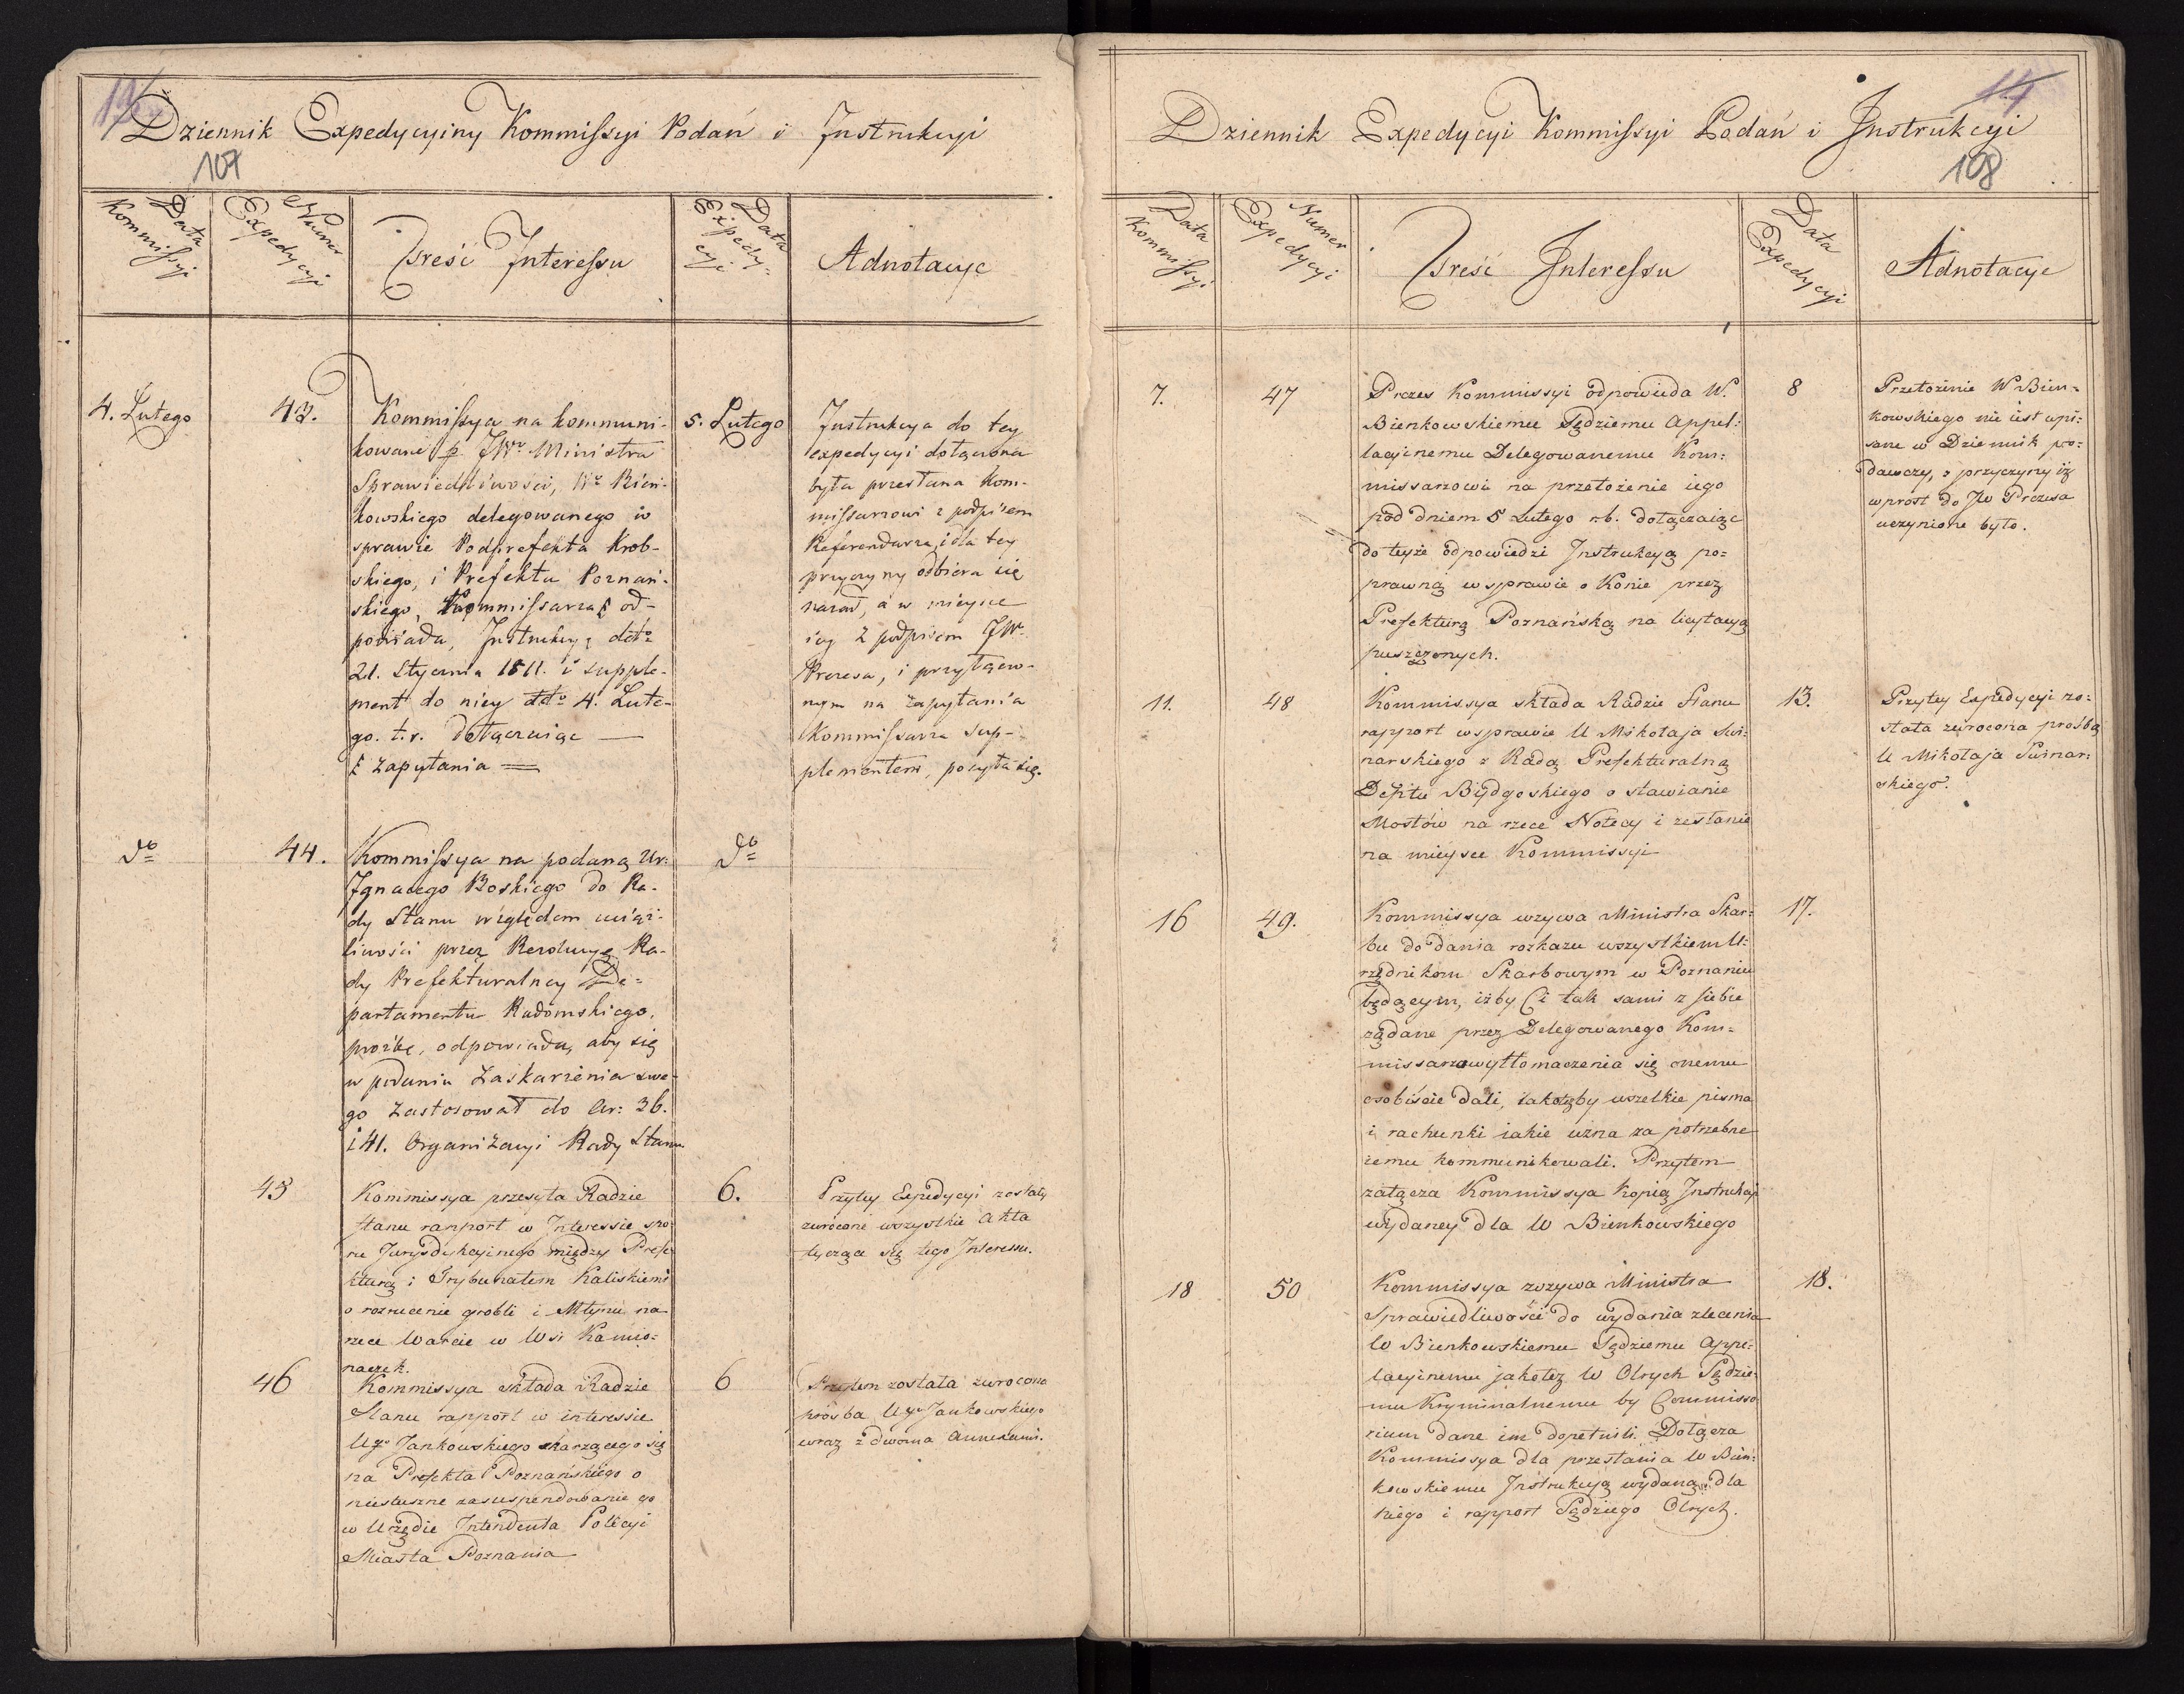 Dziennik Expedycyiny Kommissyi Podań i Instrukcyi
107
Data Kommissyi
Numer Expedycyi
Treść Interessu
Data Expedycyi
Adnotacye
4. Lutego
43.
Kommissya na kommuni-
kowane p. JWo Ministra
Sprawiedliwości, Wo Bień-
kowskiego delegowanego w
sprawie Podprefekta Krob-
skiego, i Prefekta Poznań-
skiego, Kommissarza od-
powiada, Instrukcyę ddto
21. Stycznia 1811. i supple-
ment do niey ddto 4. Lute-
go. t.r. dołączaiąc —
zapytania
5. Lutego
Instrukcya do tey
expedycyi dołączona
była przesłana Kom-
missarzowi z podpisem
Referendarza, i dla tey
przyczyny odbiera się
nazad, a w mieysce
iey z podpisem JW.
Prezesa, i przyłączo-
nym na zapytania
Kommissarza sup-
plementem, posyła się.
do
44.
Kommissya na podaną Ur:
Ignacego Boskiego do Ra-
dy Stanu względem uciąż-
liwości przez Rezolucyę Ra-
dy Prefekturalney De-
partamentu Radomskiego,
proźbę, odpowiada, aby się
w podaniu Zaskarżenia swe-
go zastosował do Ar: 36.
i 41. Organizacyi Rady Stanu
do
45
Kommissya przesyła Radzie
Stanu rapport w Interessie spo-
ru Jurysdykcyinego między Prefe-
kturą i Trybunałem Kaliskiemi
o rozrucenie grobli i Młynu na
rzece Warcie w Wsi Kamio-
naczek.
6.
Przytey Expedycyi zostały
zwrocone wszystkie Akta
tyczące się tego Interessu.
46
Kommissya składa Radzie
Stanu rapport w interessie
Ugo Jankowskiego skarzącego się
na Prefekta Poznańskiego o
niesłuszne zasuspendowanie go
w Urzędzie Intendenta Policyi
Miasta Poznania
6
Przytem została zwrocona
prośba Ugo Jankowskiego
wraz z dwoma Annexami.
14
Dziennik Expedycyi Kommissyi Podań i Instrukcyi
108
Data Kommissyi
Numer Expedycyi
Treść Interessu
Data Expedycyi
Adnotacye
7.
47
Prezes Kommissyi odpowieda W.
Bienkowskiemu Sędziemu Appel:
lacyinemu Delegowanemu Kom:
missarzowi na przełożenie iego
pod dniem 5 Lutego r.b. dołączaiąc
do teyże odpowiedzi Instrukcyą po=
prawną w sprawie o Konie przez
Prefekturą Poznańską na licytacyą
puszczonych.
8
Przełożenie W Bien=
kowskiego nie iest wpi:
sane w Dziennik po=
dawczy, z przyczyny iż
wprost do JW Prezesa
uczynione było.
11.
48
Kommissya składa Radzie Stanu
rapport w sprawie U Mikołaja Swi:
narskiego z Radą Prefekturalną
Deptu Bydgoskiego o stawianie
Mostów na rzece Notecy i zesłanie
na mieysce Kommissyi
13.
Przytey Expedycyi zo:
stała zwrocona prośba
U Mikołaja Swinar:
skiego.
16
49.
Kommissya wzywa Ministra Skar:
bu do dania rozkazu wszystkiem U:
rzędnikom Skarbowym w Poznaniu
będącym, iżby Ci tak sami z siebie
żądane przez Delegowanego Kom=
missarza wytłomaczenia się onemu
osobiście dali, iakożby wszelkie pisma
i rachunki iakie uzna za potrzebne
iemu kommunikowali. Przytem
załącza Kommissya Kopią Instrukcyi
wydaney dla W Bienkowskiego
17.
18
50
Kommissya wzywa Ministra
Sprawiedliwości do wydania zlecenia
W Bienkowskiemu Sędziemu Appe:
lacyinemu jakoteż W Olrych Sędzie:
mu Kryminalnemu by Commisso
rium dane im dopełnili. Dołącza
Kommissya dla przesłania W Bień:
kowskiemu Instrukcyą wydaną dla
niego i rapport Sędziego Olrych.
18.